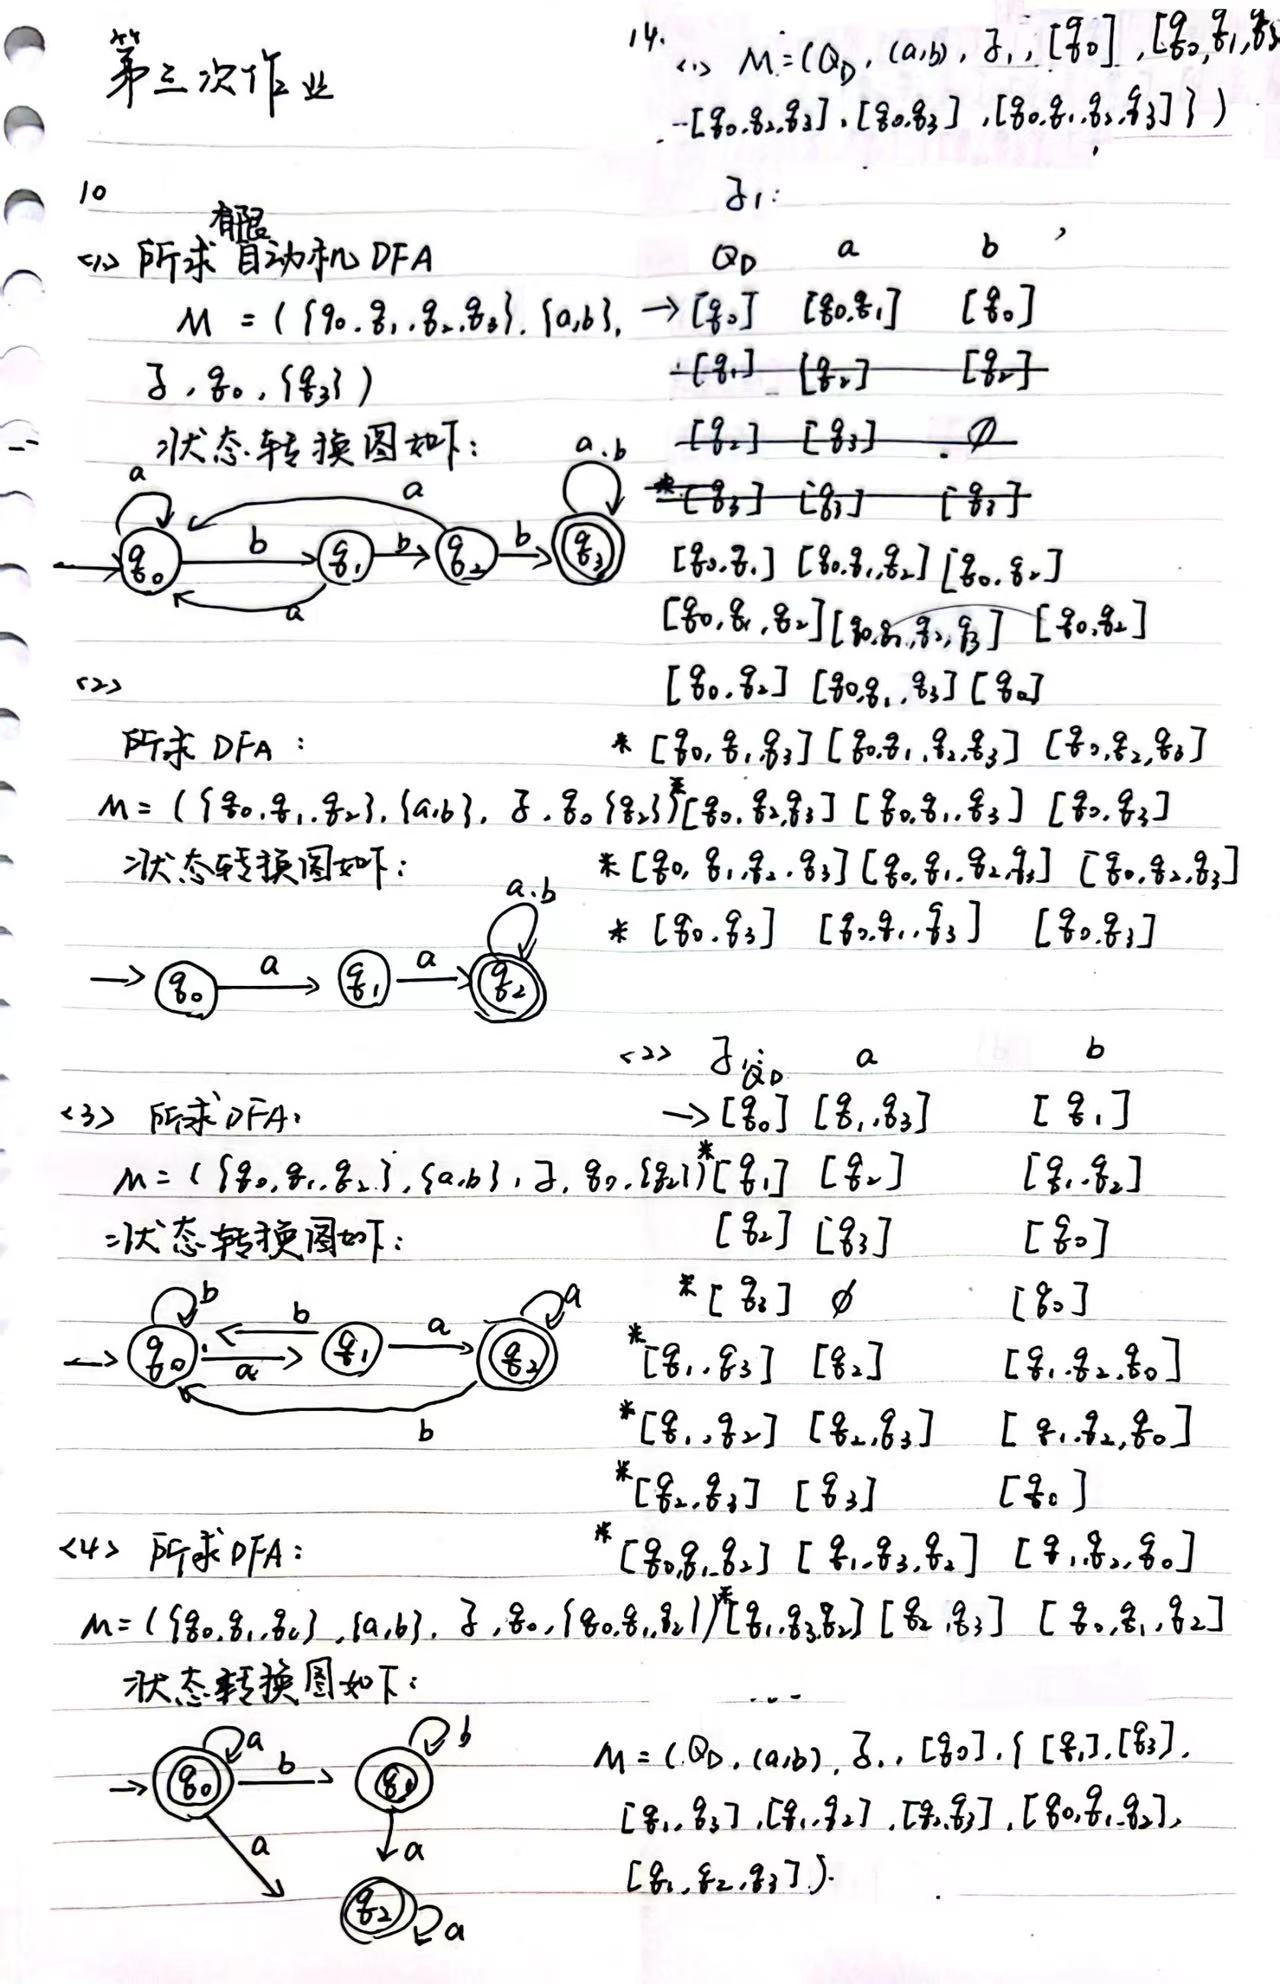 第三次作业
10
有限
<1> 所求自动机DFA
M = ({q0,q1,q2,q3},{a,b},
δ,q0,{q3})
状态转换图如下:
a
a
a.b
q0
b
q1
b
q2
b
q3
a
<2>
所求 DFA:
M = ({q0,q1,q2},{a,b}, δ,q0{q2})
状态转换图如下:
a.b
q0
a
q1
a
q2
<3> 所求DFA:
M = ({q0,q1,q2},{a,b},δ,q0,{q2})
状态转换图如下:
b
b
a
a
q0
a
q1
q2
b
<4> 所求DFA:
M = ({q0,q1,q2},{a,b},δ,q0,{q0,q1,q2})
状态转换图如下:
a
b
q0
b
a
a
q2
a
14.
<1> M=(QD,(a,b),δ1,[q0],[q0,q1,q3
[q0,q2,q3],[q0,q3],[q0,q1,q2,q3]})
δ1:
QD a b
→[q0] [q0,q1] [q0]
[q1] [q2] [q2]
[q2] [q3] ∅
*[q3] [q3] [q3]
[q0,q1] [q0,q1,q2] [q0,q2]
[q0,q1,q2] [q0,q1,q2,q3] [q0,q2]
[q0,q2] [q0,q1,q3] [q0]
* [q0,q1,q3] [q0,q1,q2,q3] [q0,q2,q3]
*[q0,q2,q3] [q0,q1,q3] [q0,q3]
* [q0,q1,q2,q3] [q0,q1,q2,q3] [q0,q2,q3]
* [q0,q3] [q0,q1,q3] [q0,q3]
<2> δ1 QD a b
→[q0] [q1,q3] [q1]
*[q1] [q2] [q1,q2]
[q2] [q3] [q0]
*[q3] ∅ [q0]
*[q1,q3] [q2] [q1,q2,q0]
*[q1,q2] [q2,q3] [q1,q2,q0]
*[q2,q3] [q3] [q0]
*[q0,q1,q2] [q1,q3,q2] [q1,q2,q0]
*[q1,q3,q2] [q2,q3] [q0,q1,q2]
M = (QD,(a,b),δ1,[q0],{[q1],[q3],
[q1,q3],[q1,q2],[q2,q3],[q0,q1,q2],
[q1,q2,q3]).